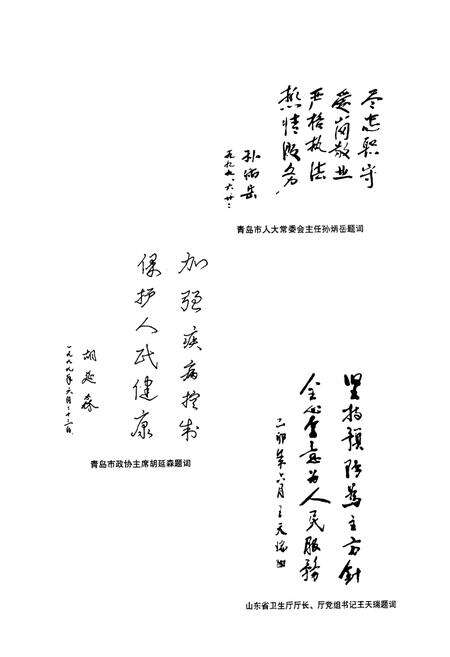 尽忠职守
爱岗敬业
严格执法
热情服务
孙炳岳
青岛市人大常委会主任孙炳岳题词
加强疾病控制
保护人民健康
胡延森
青岛市政协主席胡延森题词
坚持预防为主方針
全心全意为人民服務
己卯年六月王天瑞
山东省卫生厅厅长、厅党组书记王天瑞题词